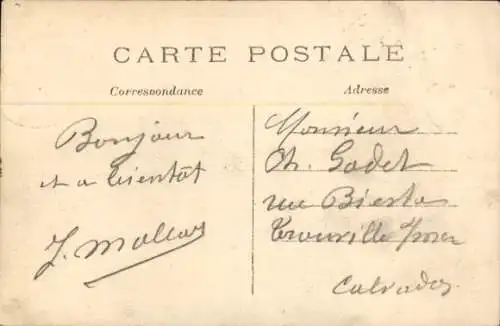 CARTE POSTALE
Correspondance
Adresse
Bonjour
et a bientôt
Monsieur
Ch. Godet
rue
Trouville s/mer
Calvados